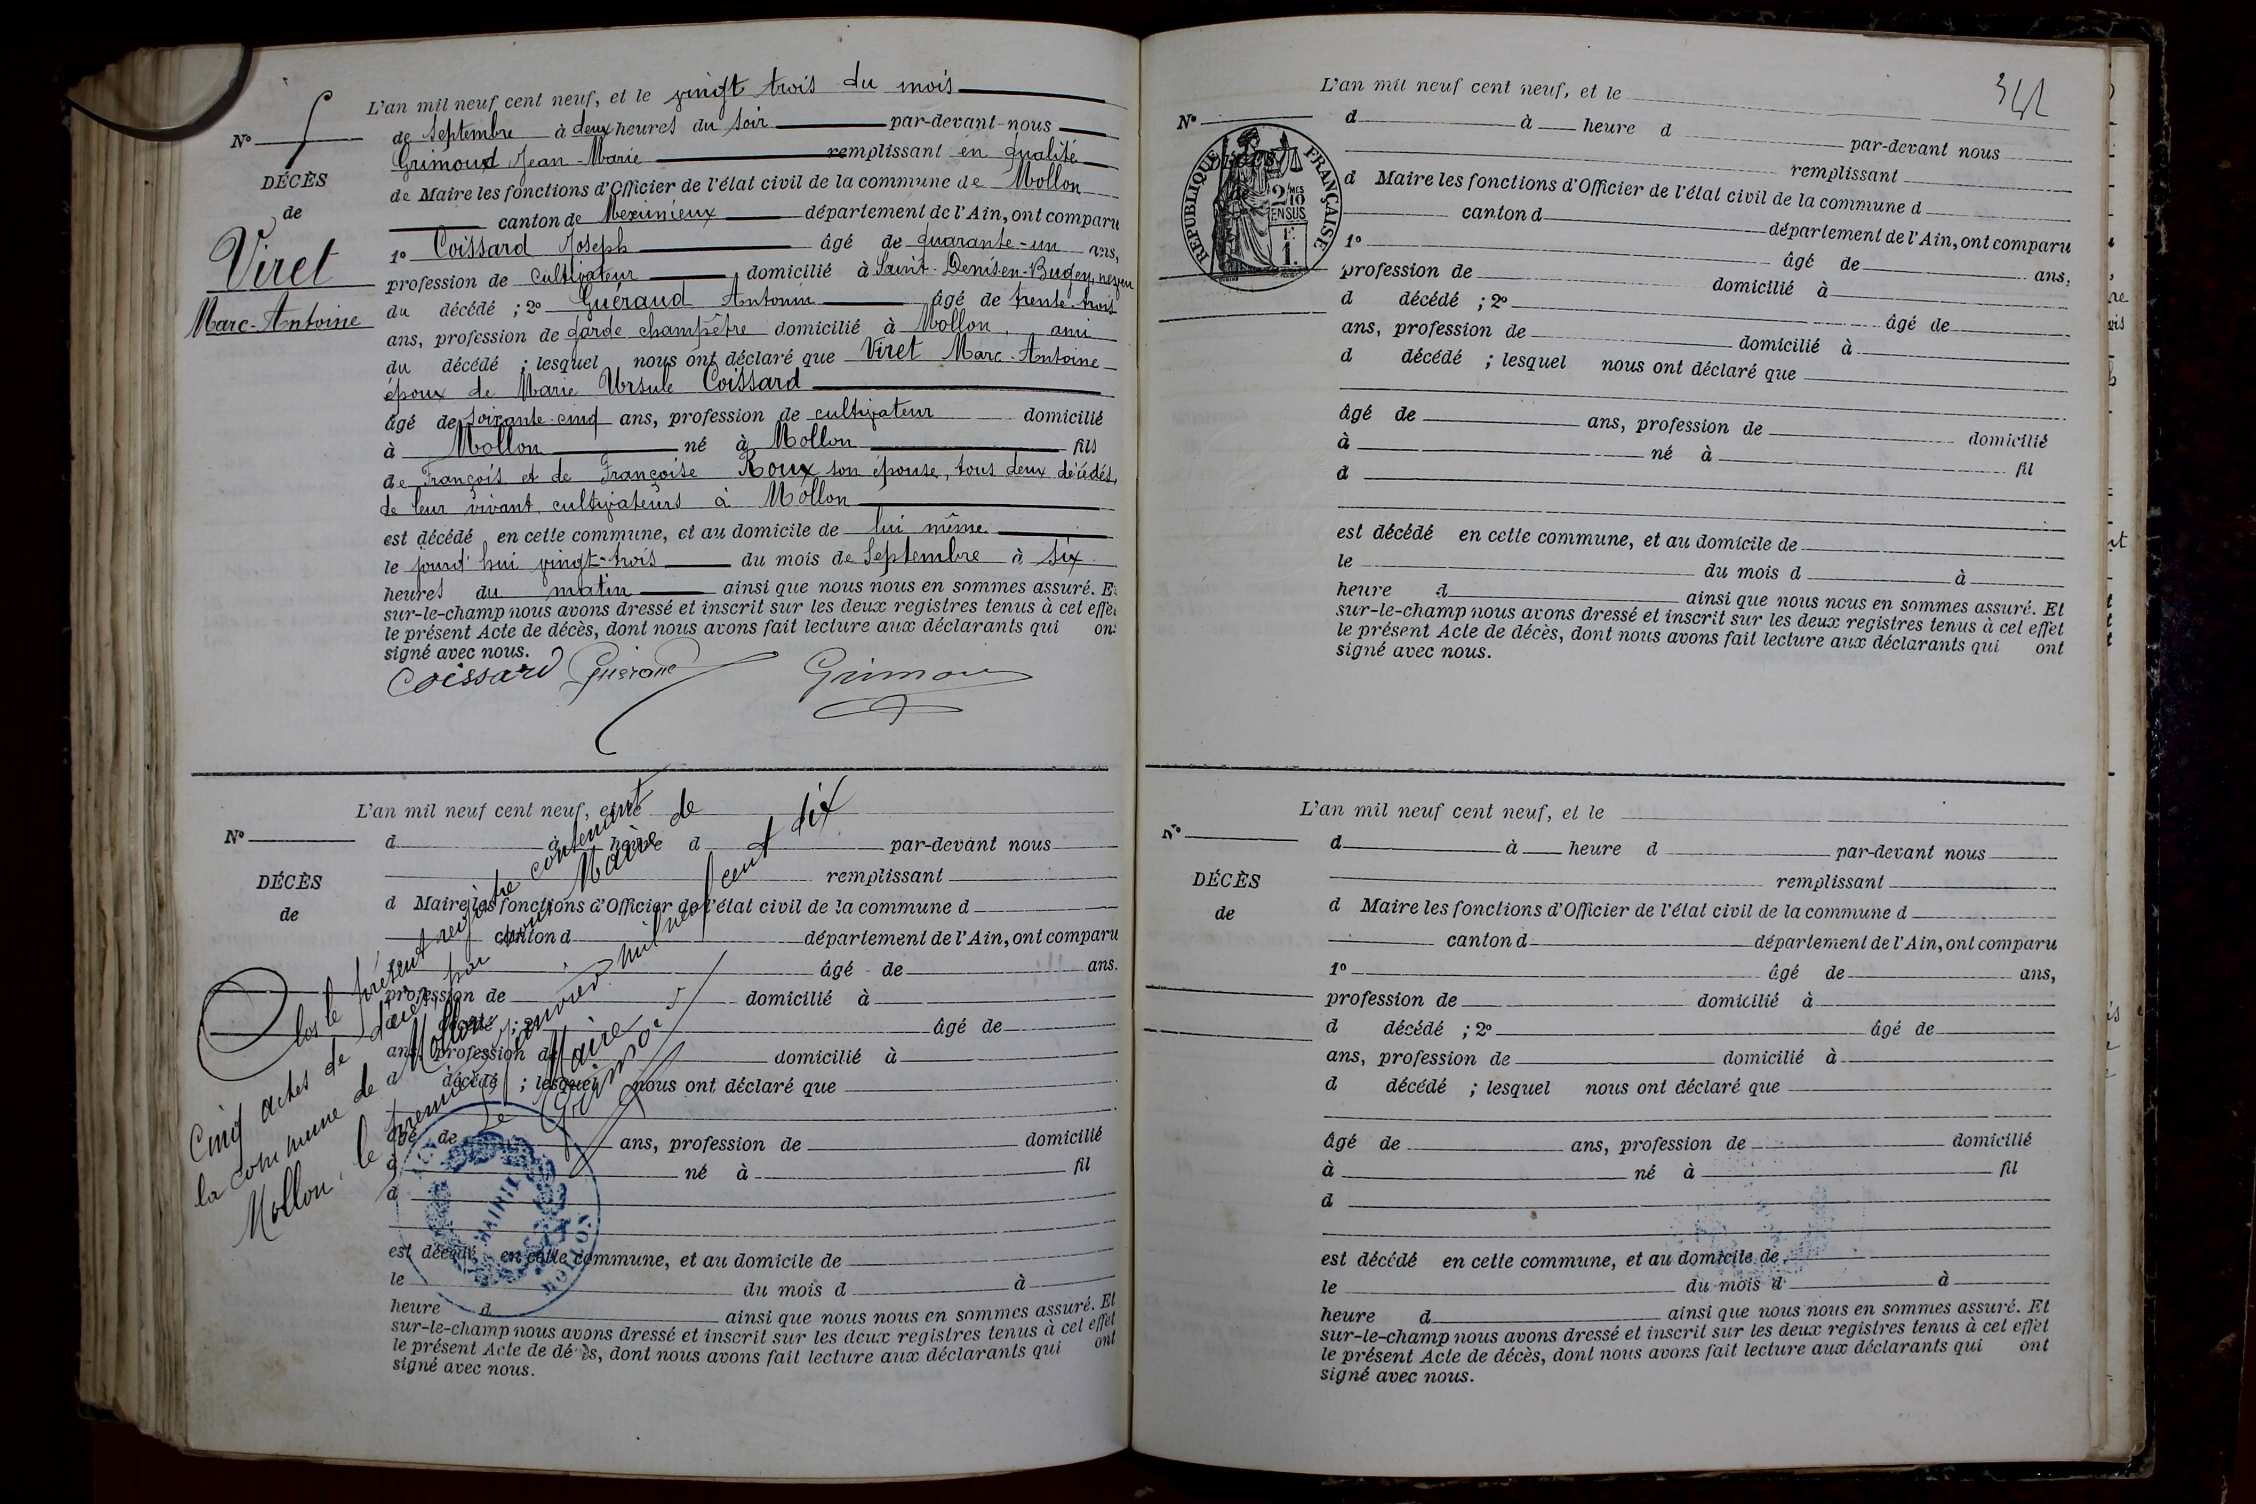 L'an mil neuf cent neuf, et le vingt trois du mois
de Septembre à deux heures du soir par-devant nous
Grimoud Jean-Marie remplissant en qualité
de Maire les fonctions d'Officier de l'état civil de la commune de Mollon
canton de Meximieux département de l'Ain, ont comparu
1° Coissard Joseph âgé de quarante-un ans,
profession de cultivateur domicilié à Saint-Denis-en-Bugey, neveu
du décédé ; 2° Guéraud Antonin âgé de trente-trois
ans, profession de garde champêtre domicilié à Mollon, ami
du décédé ; lesquel nous ont déclaré que Viret Marc-Antoine
époux de Marie Ursule Coissard
âgé de soixante-cinq ans, profession de cultivateur domicilié
à Mollon né à Mollon fils
de François et de Françoise Roux son épouse, tous deux décédés,
de leur vivant cultivateurs à Mollon
est décédé en cette commune, et au domicile de lui même
le jourd'hui vingt-trois du mois de Septembre à six
heures du matin ainsi que nous nous en sommes assuré. Et
sur-le-champ nous avons dressé et inscrit sur les deux registres tenus à cet effet
le présent Acte de décès, dont nous avons fait lecture aux déclarants qui ont
signé avec nous.
Coissard Guéraud Grimoud
N° 5
DÉCÈS
de
Viret
Marc-Antoine
L'an mil neuf cent neuf, et le
N°
DÉCÈS
de
d à heure d par-devant nous
remplissant
d Maire les fonctions d'Officier de l'état civil de la commune d
canton d département de l'Ain, ont comparu
âgé de ans.
profession de domicilié à
décédé ; 2° âgé de
ans, profession de domicilié à
d décédé ; lesquel nous ont déclaré que
âgé de ans, profession de domicilié
à né à fil
d
est décédé en cette commune, et au domicile de
le du mois d à
heure d ainsi que nous nous en sommes assuré. Et
sur-le-champ nous avons dressé et inscrit sur les deux registres tenus à cet effet
le présent Acte de décès, dont nous avons fait lecture aux déclarants qui ont
signé avec nous.
Clos le présent registre contenant
Cinq actes de décès, par nous Maire de
la commune de Mollon
Mollon, le premier Janvier mil neuf cent dix
Le Maire
Grimoud
MAIRIE
MOLLON
341
L'an mil neuf cent neuf, et le
N°
RÉPUBLIQUE FRANÇAISE
2/10
EN SUS
1.
d à heure d par-devant nous
remplissant
d Maire les fonctions d'Officier de l'état civil de la commune d
canton d département de l'Ain, ont comparu
1° âgé de ans,
profession de domicilié à
d décédé ; 2° âgé de
ans, profession de domicilié à
d décédé ; lesquel nous ont déclaré que
âgé de ans, profession de domicilié
à né à fil
d
est décédé en cette commune, et au domicile de
le du mois d à
heure d ainsi que nous nous en sommes assuré. Et
sur-le-champ nous avons dressé et inscrit sur les deux registres tenus à cet effet
le présent Acte de décès, dont nous avons fait lecture aux déclarants qui ont
signé avec nous.
L'an mil neuf cent neuf, et le
N°
DÉCÈS
de
d à heure d par-devant nous
remplissant
d Maire les fonctions d'Officier de l'état civil de la commune d
canton d département de l'Ain, ont comparu
1° âgé de ans,
profession de domicilié à
d décédé ; 2° âgé de
ans, profession de domicilié à
d décédé ; lesquel nous ont déclaré que
âgé de ans, profession de domicilié
à né à fil
d
est décédé en cette commune, et au domicile de
le du mois d à
heure d ainsi que nous nous en sommes assuré. Et
sur-le-champ nous avons dressé et inscrit sur les deux registres tenus à cet effet
le présent Acte de décès, dont nous avons fait lecture aux déclarants qui ont
signé avec nous.